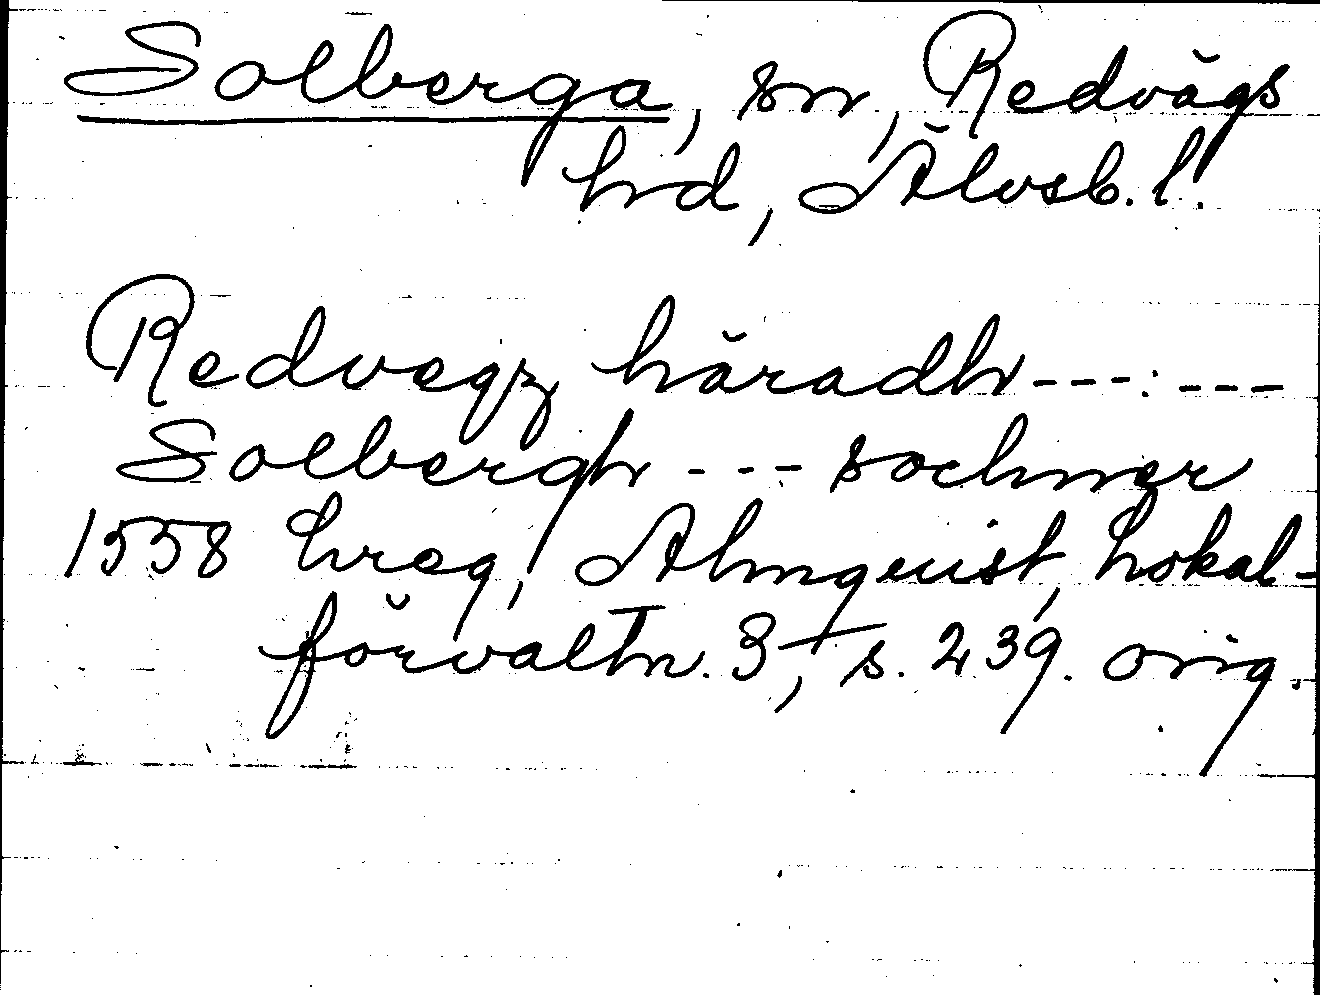 Solberga, sn, Redvägs
hd, Älvsb. l.
Redvegz häradh ---:---
Solbergh --- sochner
1558 hreg, Almquist, Lokal-
förvaltn. 3, s. 239. orig.